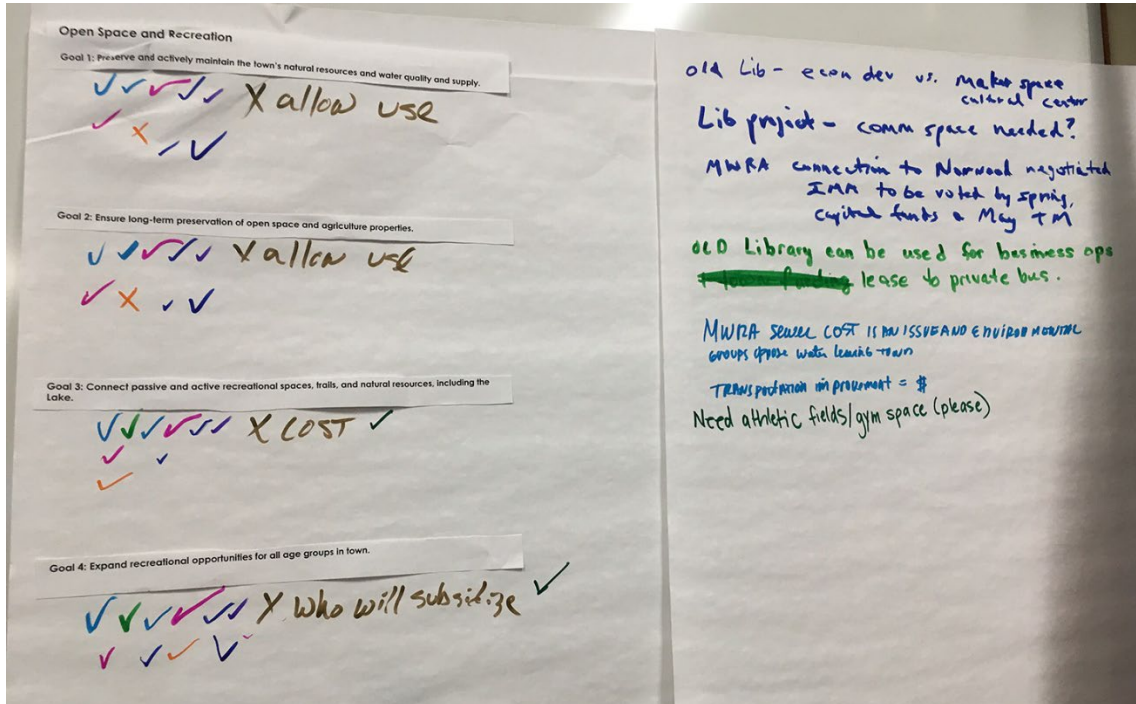 Open Space and Recreation
Goal 1: Preserve and actively maintain the town's natural resources and water quality and supply.
X allow use
Goal 2: Ensure long-term preservation of open space and agriculture properties.
X allow use
Goal 3: Connect passive and active recreational spaces, trails, and natural resources, including the
Lake.
X COST
Goal 4: Expand recreational opportunities for all age groups in town.
X Who will subsidize
old Lib - econ dev vs. Maker space
cultural center
Lib project - comm space needed?
MWRA connection to Norwood negotiated
IMA to be voted by spring,
capital funds @ May TM
OLD Library can be used for business ops
lease to private bus.
MWRA sewer COST IS AN ISSUE AND ENVIRONMENTAL
GROUPS oppose water leaving town
TRANSPORTATION improvement = $
Need athletic fields/gym space (please)